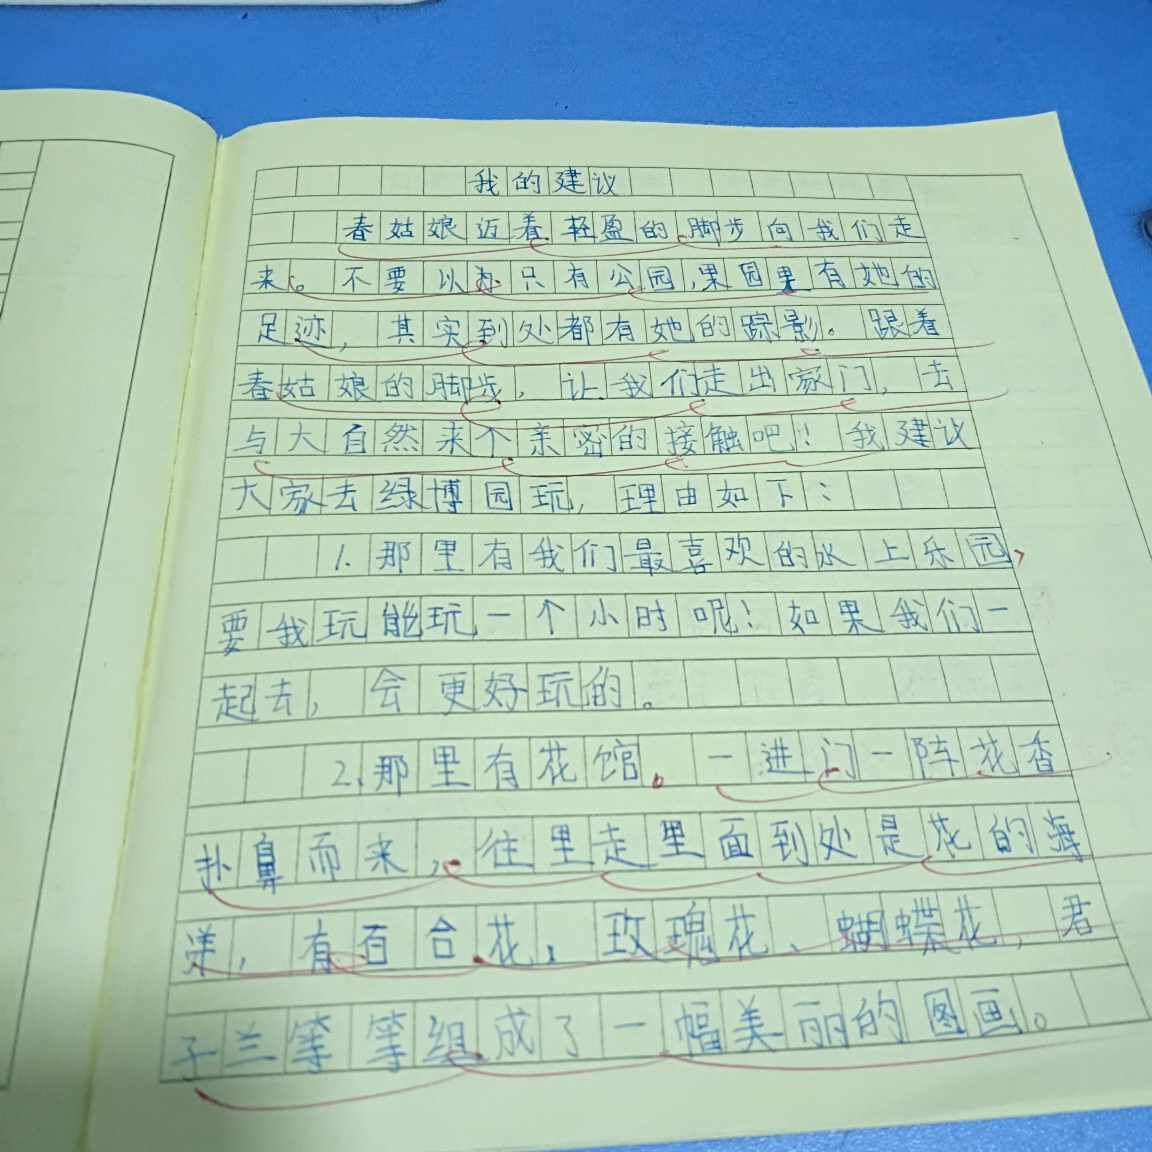 我的建议
春姑娘迈着轻盈的脚步向我们走
来。不要以为只有公园,果园里有她的
足迹,其实到处都有她的踪影。跟着
春姑娘的脚步,让我们走出家门,去
与大自然来个亲密的接触吧!我建议
大家去绿博园玩,理由如下:
1.那里有我们最喜欢的水上乐园,
要我玩能玩一个小时呢!如果我们一
起去,会更好玩的。
2.那里有花馆。一进门一阵花香
扑鼻而来,往里走里面到处是花的海
洋,有百合花,玫瑰花、蝴蝶花,君
子兰等等组成了一幅美丽的图画。